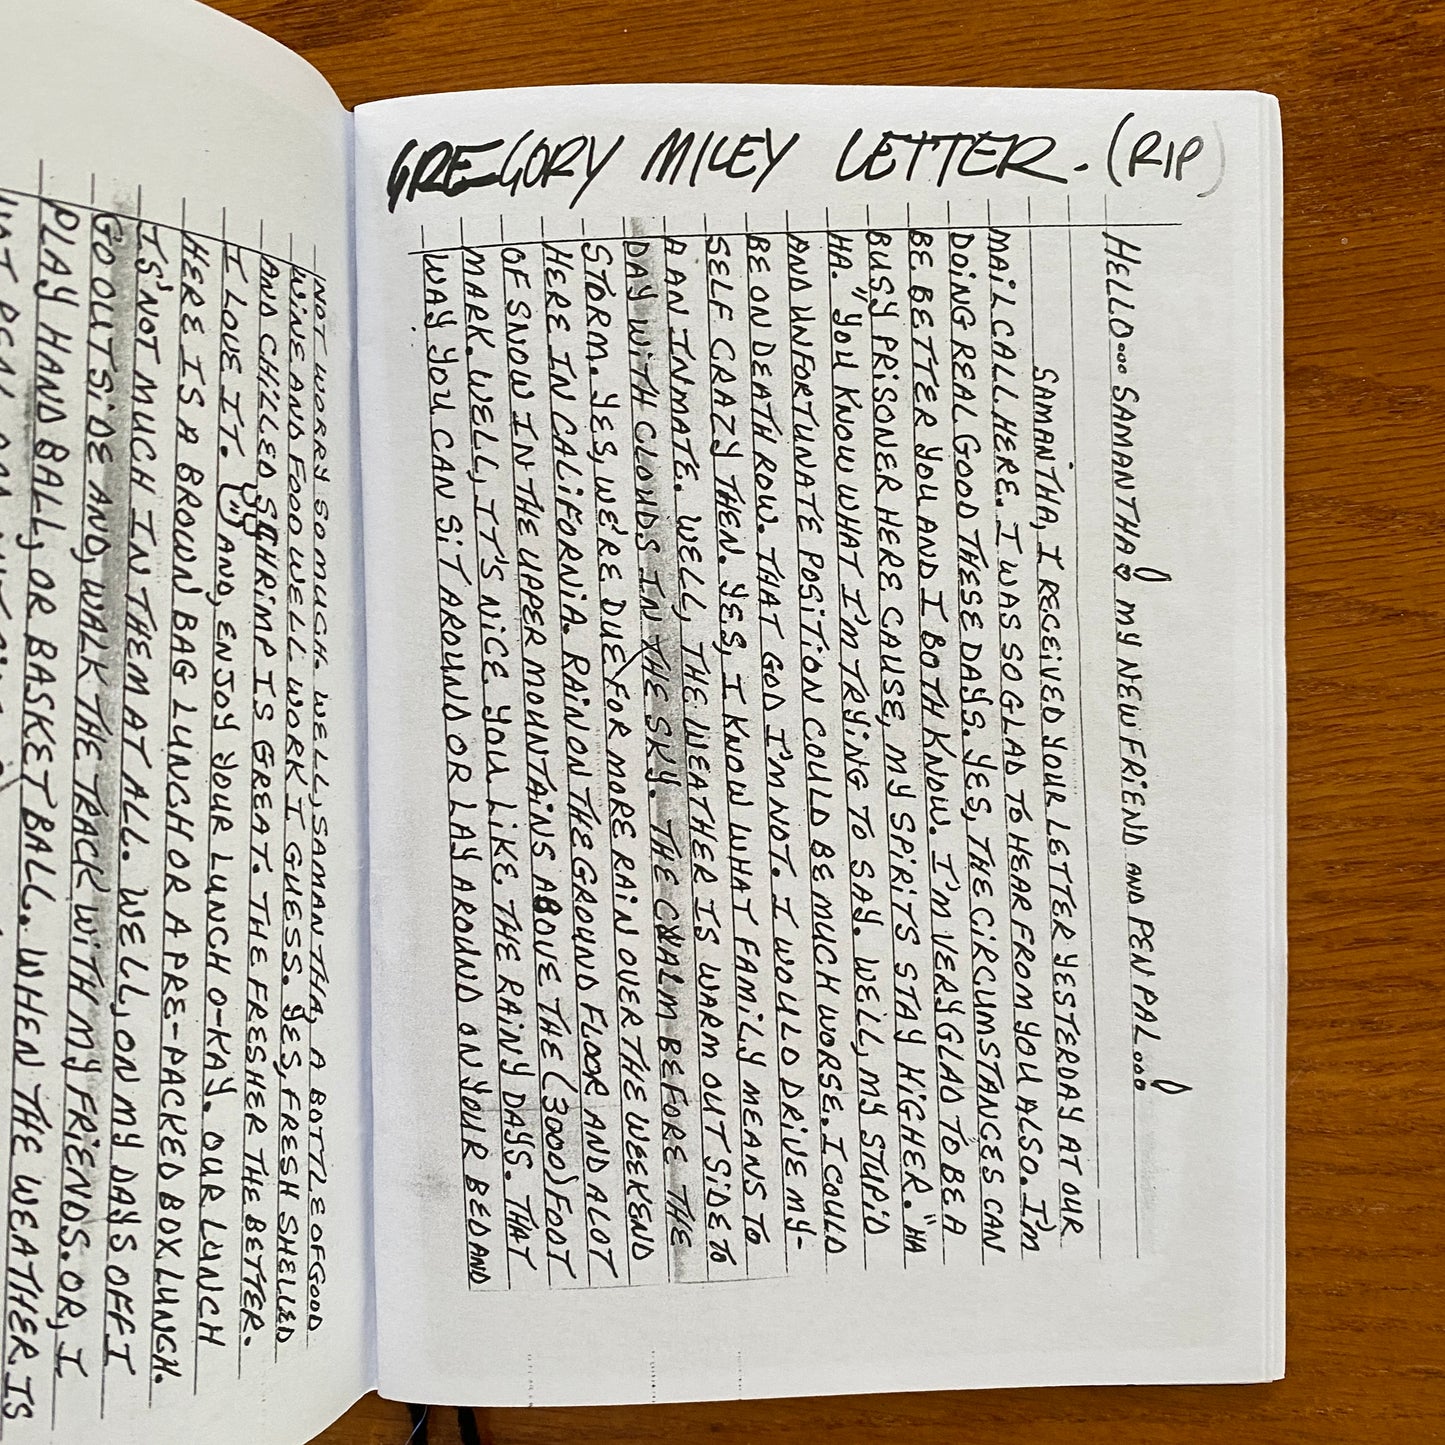 GREGORY MILEY LETTER. (RIP)
HELLO... SAMANTHA! MY NEW FRIEND AND PEN PAL...!
SAMANTHA, I RECEIVED YOUR LETTER YESTERDAY AT OUR
MAIL CALL HERE. I WAS SO GLAD TO HEAR FROM YOU ALSO. I'M
DOING REAL GOOD THESE DAYS. YES, THE CIRCUMSTANCES CAN
BE BETTER YOU AND I BOTH KNOW. I'M VERY GLAD TO BE A
BUSY PRISONER HERE CAUSE, MY SPIRITS STAY HIGHER. "HA
HA." YOU KNOW WHAT I'M TRYING TO SAY. WELL, MY STUPID
AND UNFORTUNATE POSITION COULD BE MUCH WORSE. I COULD
BE ON DEATH ROW. THAT GOD I'M NOT. I WOULD DRIVE MY-
SELF CRAZY THEN. YES, I KNOW WHAT FAMILY MEANS TO
A AN INMATE. WELL, THE WEATHER IS WARM OUT SIDE TO
DAY WITH CLOUDS IN THE SKY. THE CALM BEFORE THE
STORM. YES, WE'RE DUE FOR MORE RAIN OVER THE WEEKEND
HERE IN CALIFORNIA. RAIN ON THE GROUND FLOOR AND A LOT
OF SNOW IN THE UPPER MOUNTAINS ABOVE THE (3000) FOOT
MARK. WELL, IT'S NICE YOU LIKE THE RAINY DAYS. THAT
WAY YOU CAN SIT AROUND OR LAY AROUND ON YOUR BED AND
NOT WORRY SO MUCH. WELL, SAMANTHA, A BOTTLE OF GOOD
WINE AND FOOD WELL WORK I GUESS. YES, FRESH SHELLED
AND CHILLED SCHRIMP IS GREAT. THE FRESHER THE BETTER.
I LOVE IT. AND, ENJOY YOUR LUNCH O-KAY. OUR LUNCH
HERE IS A BROWN BAG LUNCH OR A PRE-PACKED BOX LUNCH.
IS'NOT MUCH IN THEM AT ALL. WELL, ON MY DAYS OFF I
GO OUTSIDE AND, WALK THE TRACK WITH MY FRIENDS. OR, I
PLAY HAND BALL, OR BASKET BALL. WHEN THE WEATHER IS